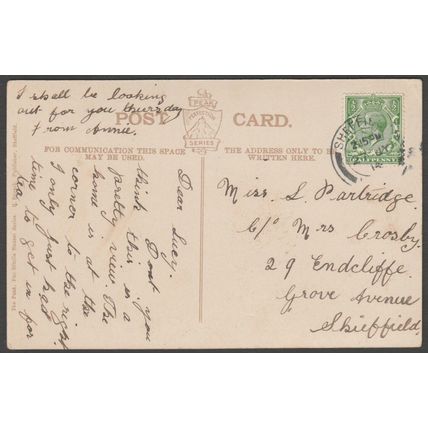 I shall be looking
out for you thursday
from Annie.
POST CARD.
PEAK
PERFECTION
SERIES
FOR COMMUNICATION THIS SPACE
MAY BE USED.
THE ADDRESS TO BE
WRITTEN HERE.
Dear Lucy.
Dont you
think this is a
pretty view. The
home is at the
corner to the right
I only just had
time to get in for
tea
Miss. L. Partridge.
C/o Mrs Crosby.
29 Endcliffe.
Grove Avenue
Sheffield.
SHEFFI
2.15 PM
14
HALFPENNY
Sheffield.